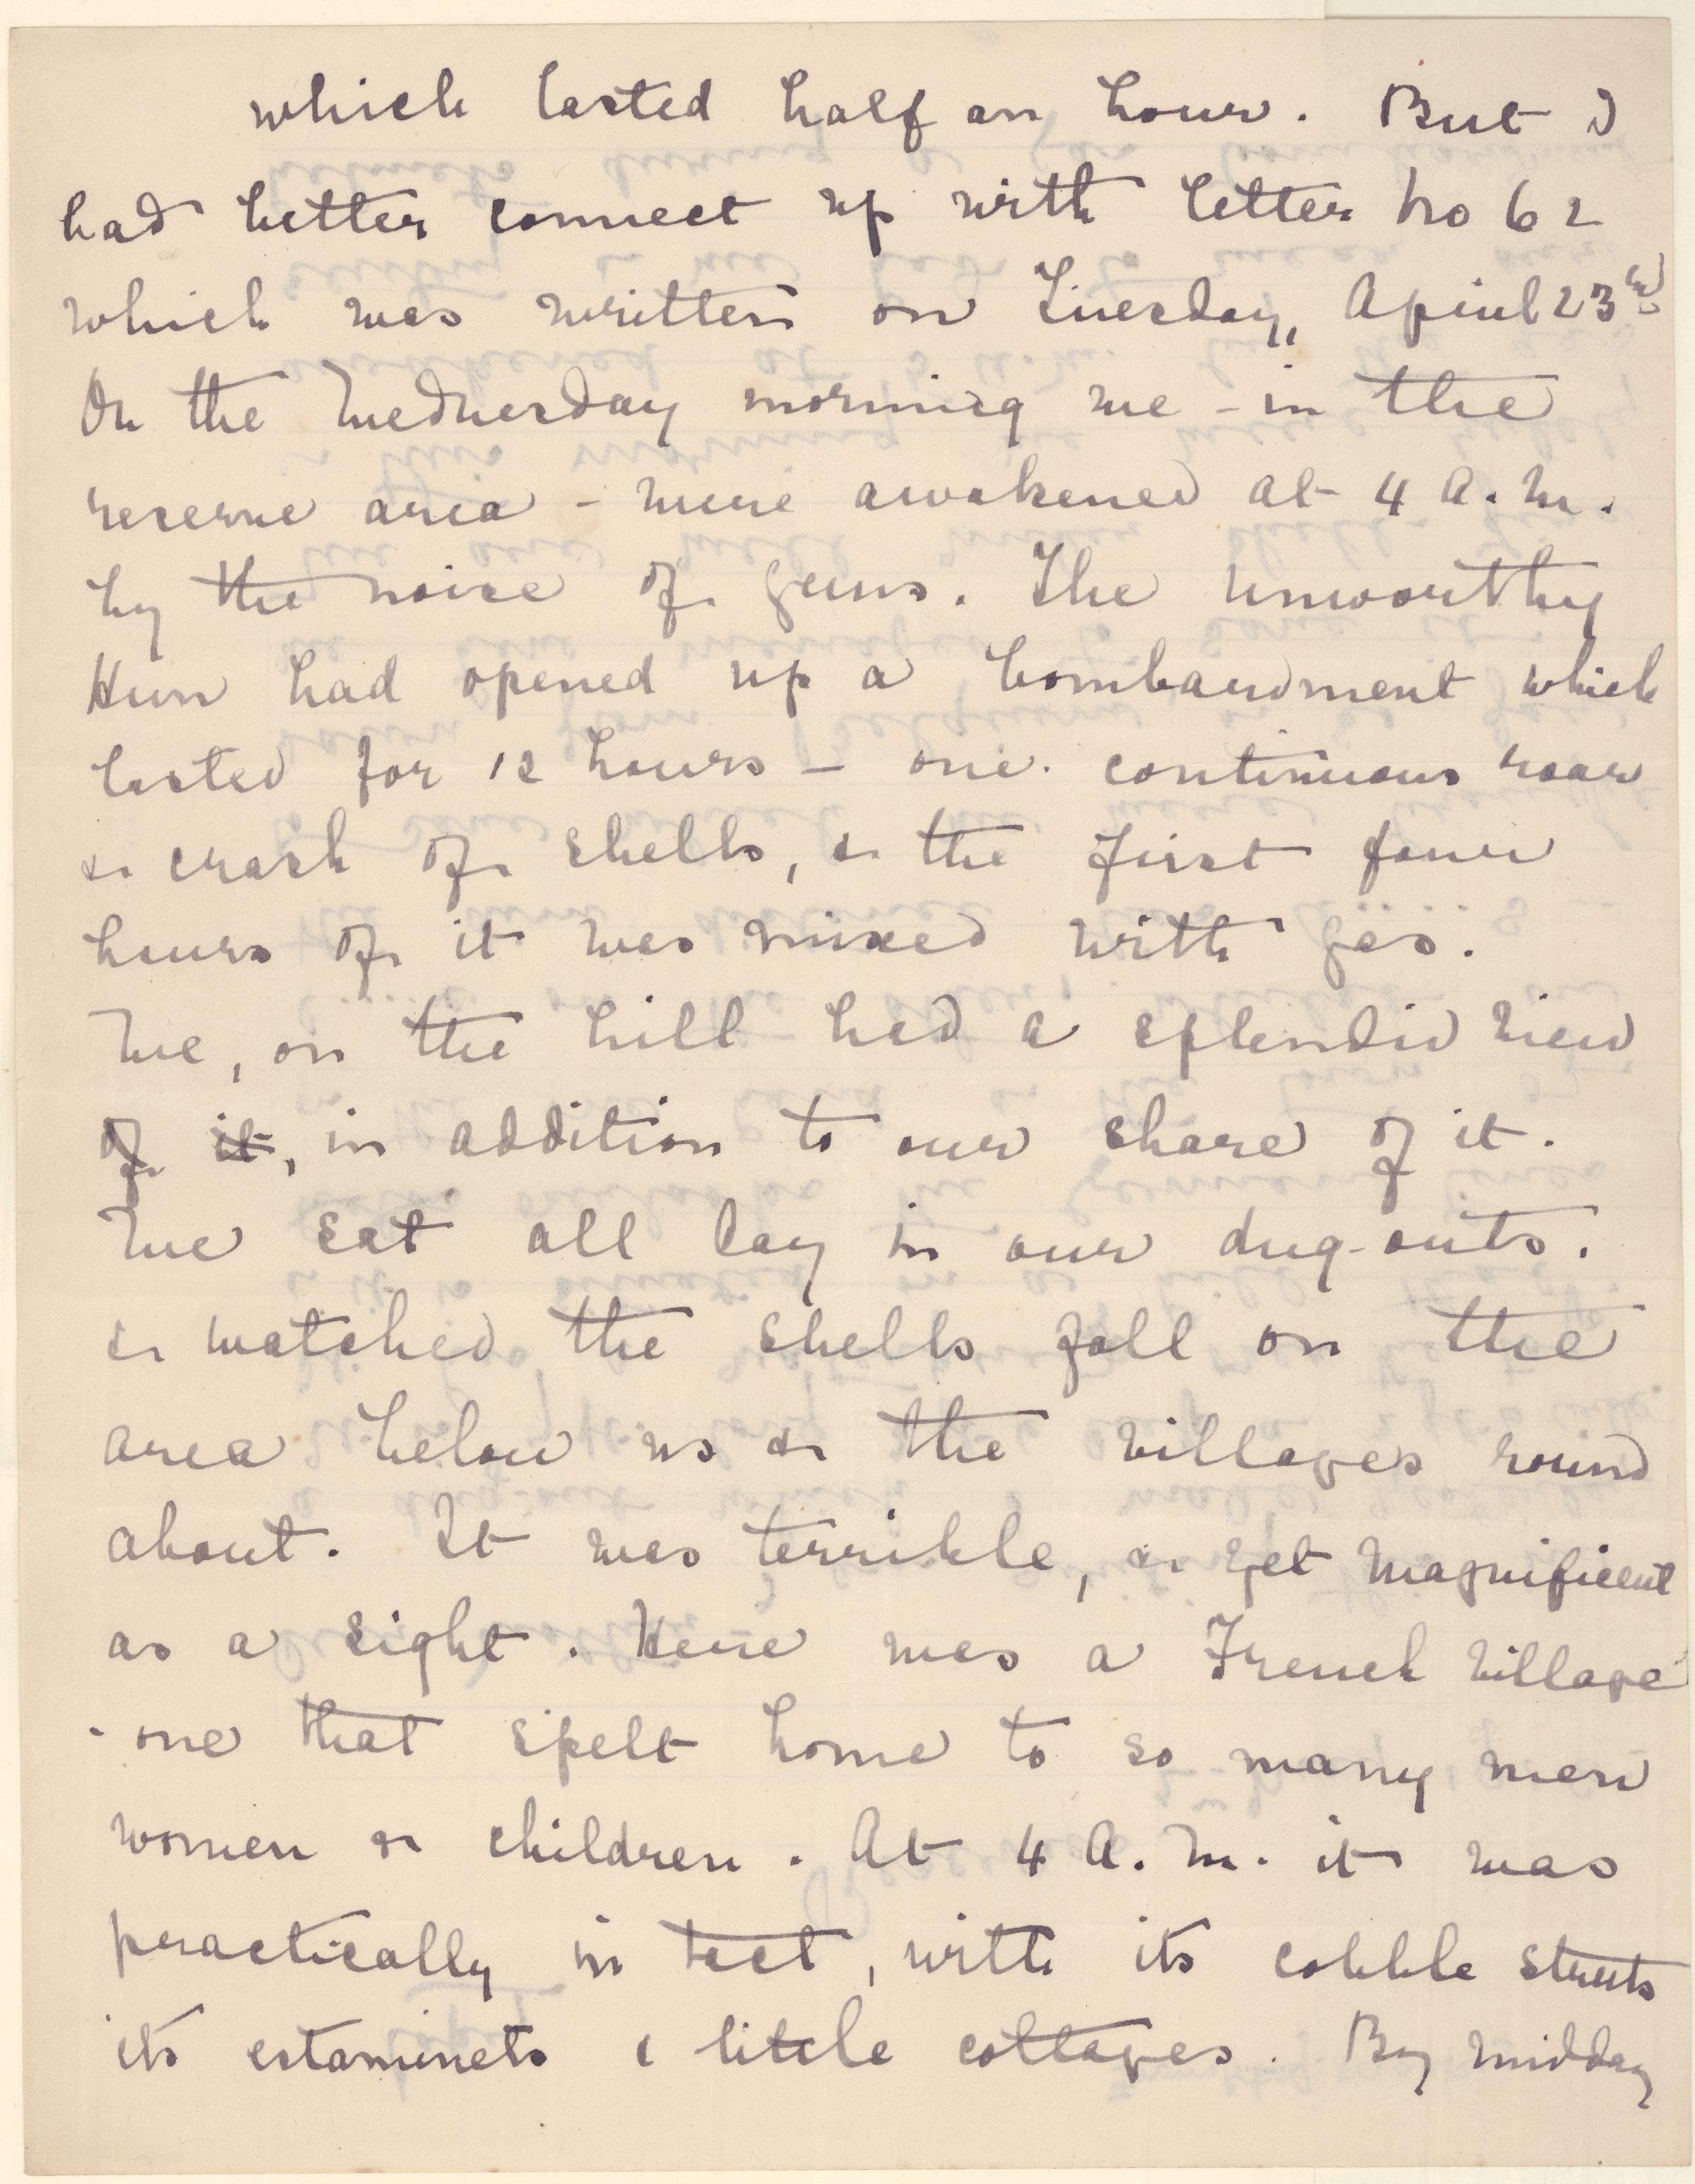 which lasted half an hour. But I
had better connect up with letter No 62
which was written on Tuesday, April 23rd
On the Wednesday morning we - in the
reserve area - were awakened at 4 A.M.
by the noise of guns. The unworthy
Hun had opened up a bombardment which
lasted for 12 hours - one continuous roar
& crash of shells, & the first four
hours of it was mixed with gas.
We, on the hill had a splendid view
of it, in addition to our share of it.
We sat all day in our dug-outs.
& watched the shells fall on the
area below us & the villages round
about. It was terrible, & yet magnificent
as a sight. Here was a French village
- one that spelt home to so many men
women & children. At 4 A.M. it was
practically in tact, with its cobble streets
its estaminets & little cottages. By midday